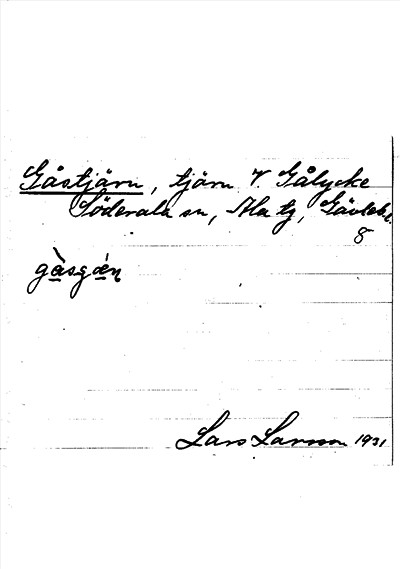 Gåstjärn, tjärn V. Gålycke
Söderala sn, Ala tg, Gävlebs l.
8
gàsgæ̀n
Lars Larsson 1931